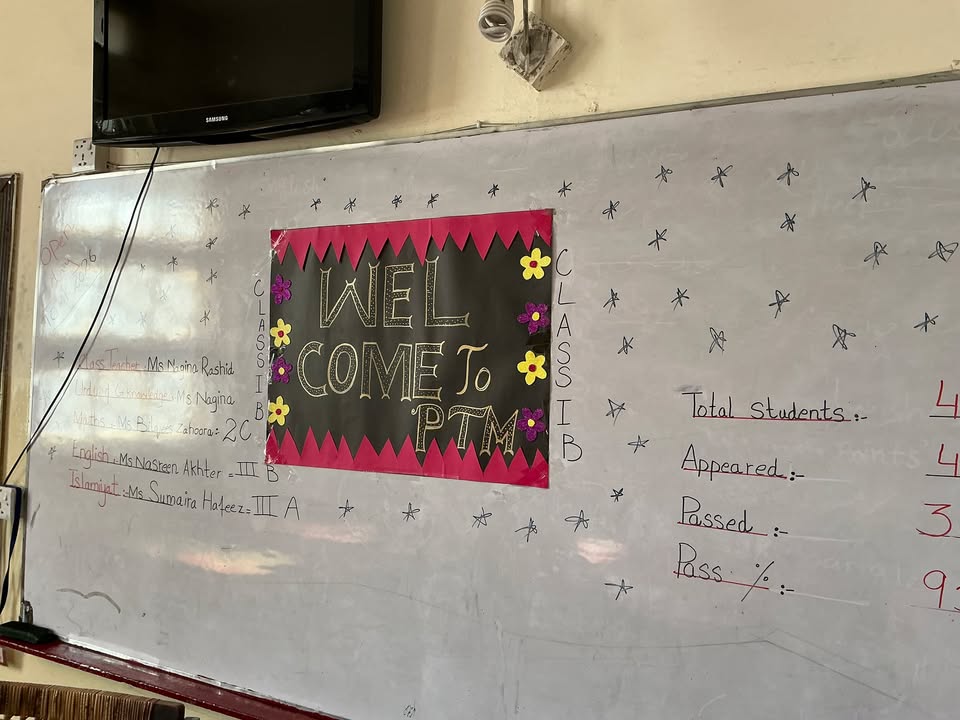 SAMSUNG
WEL
COME To
PTM
CLASS I B
CLASS I B
Class Teacher: Ms Nagina Rashid
Ms Nagina
Maths: Ms Zahoora: 2C
English: Ms Nasreen Akhter = III B
Islamiyat:- Ms Sumaira Hafeez = III A
Total Students:- 4
Appeared:- 4
Passed:- 3
Pass %:- 9